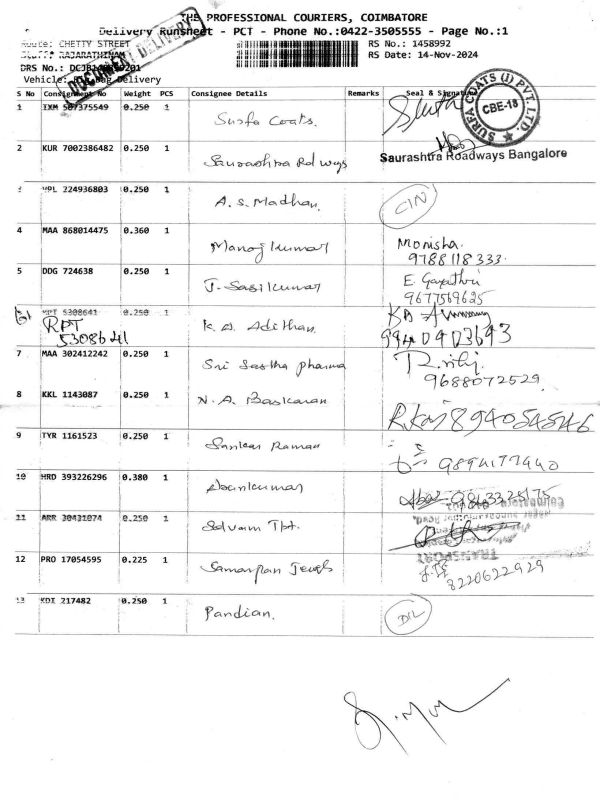 THE PROFESSIONAL COURIERS, COIMBATORE
Delivery Runsheet - PCT - Phone No.:0422-3505555 - Page No.:1
Route: CHETTY STREET
RS No.: 1458992
RAJARATHINAM
RS Date: 14-Nov-2024
DRS No.:
DOCUMENT DELIVERY
Vehicle: Delivery
S No Consignment No Weight PCS Consignee Details Remarks Seal & Signature
1 IXM 507375549 0.250 1 Surfa Coats.
SURFA COATS (I) PVT. LTD. CBE-18
2 KUR 7002386482 0.250 1 Saurashtra Rd ways
Saurashtra Roadways Bangalore
VPL 224936803 0.250 1 A. S. Madhan. CIN
4 MAA 868014475 0.360 1 Manoj kumar Monisha.
9788118333.
5 DDG 724638 0.250 1 J. Sasikumar E. Gayathri
9677569625
5308641 0.250 1 K. A. Adithan.
RPT
5308641
7 MAA 302412242 0.250 1 Sri Sastha pharma
9688072529
8 KKL 1143087 0.250 1 N. A. Baskaran
8940545546
9 TYR 1161523 0.250 1 Sankar Raman
9894177440
10 HRD 393226296 0.380 1
11 ARR 30431074 0.250 1 Selvam Tpt.
TRANSPORT
12 PRO 17054595 0.225 1 Samarpan Jewels
8220622929
13 KDI 217482 0.250 1 Pandian. DIL